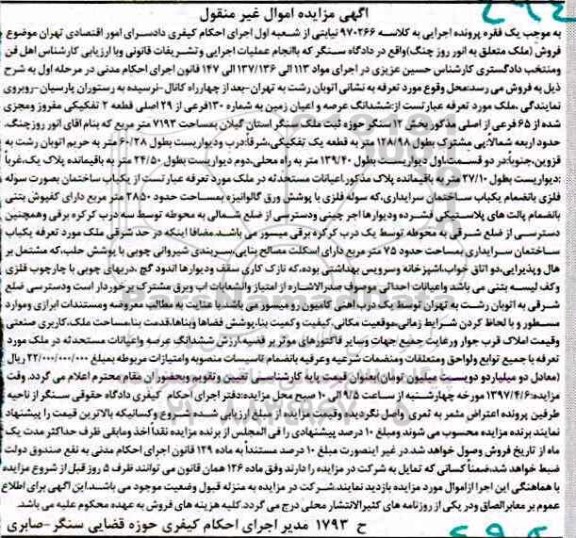 آگهی مزایده اموال غیر منقول
به موجب یک فقره پرونده اجرایی به کلاسه ۹۷۰۲۶۶ نیابتی از شعبه اول اجرای احکام کیفری دادسرای امور اقتصادی تهران موضوع
فروش (ملک متعلق به انور روز چنگ)واقع در دادگاه سنگر که باانجام عملیات اجرایی و تشریفات قانونی وبا ارزیابی کارشناس اهل فن
ومنتخب دادگستری کارشناس حسین عزیزی در اجرای مواد ۱۱۳ الی ۱۳۷/۱۳۶ الی ۱۴۷ قانون اجرای احکام مدنی در مرحله اول به شرح
ذیل به فروش می رسد:محل وقوع مورد تعرفه به نشانی اتوبان رشت به تهران-بعد از چهارراه کانال-نرسیده به رستوران پارسیان-روبروی
نمایندگی ،ملک مورد تعرفه عبارتست از:ششدانگ عرصه و اعیان زمین به شماره ۱۳۰فرعی از ۲۹ اصلی قطعه ۲ تفکیکی مفروز ومجزی
شده از ۶۵ فرعی از اصلی مذکور بخش ۱۲ سنگر حوزه ثبت ملک سنگر استان گیلان بمساحت ۷۱۹۳ متر مربع که بنام اقای انور روزچنگ،
حدود اربعه شمالا:پی مشترک بطول ۱۲۸/۹۸ متر به قطعه یک تفکیکی،شرقا:درب ودیواریست بطول ۶۰/۲۸ متر به حریم اتوبان رشت به
قزوین،جنوبا:در دو قسمت،اول دیواریست بطول ۱۳۹/۴۰ متر به راه محلی،دوم دیواریست بطول ۲۴/۵۰ متر به باقیمانده پلاک یک،غربا
:دیواریست بطول ۳۷/۱۰ متر به باقیمانده پلاک مذکور.اعیانات مستحدثه در ملک مورد تعرفه عبارتست از یکباب ساختمان بصورت سوله
فلزی بانضمام یکباب ساختمان سرایداری،که سوله فلزی با پوشش ورق گالوانیزه بمساحت حدود ۲۸۵۰ متر مربع دارای کفپوش بتنی
بانضمام پالت های پلاستیکی فشرده ودیوارها اجر چینی ودسترسی از ضلع شمالی به محوطه توسط سه درب کرکره برقی وهمچنین
دسترسی از ضلع شرقی به محوطه توسط یک درب کرکره برقی میسور می باشد.مضافا اینکه در حد شرقی ملک مورد تعرفه یکباب
ساختمان سرایداری بمساحت حدود ۷۵ متر مربع دارای اسکلت مصالح بنایی،سربندی شیروانی چوبی با پوشش حلب،که مشتمل بر
هال وپذیرایی،دو اتاق خواب،اشپزخانه وسرویس بهداشتی بوده،که نازک کاری سقف ودیوارها اندود گچ ،دربهای چوبی با چارچوب فلزی
وکف لیسه بتنی می باشد واعیانات احداثی موصوف صدرالاشاره از امتیاز وانشعابات اب وبرق مشترک برخوردار است ودسترسی ضلع
شرقی به اتوبان رشت به تهران توسط یک درب اهنی کامیون رو میسور می باشد. عنایت به مطالب معروضه ومستندات ابرازی وموارد
مسطور و با لحاظ کردن شرایط زمانی،موقعیت مکانی،کیفیت و کمیت بنا،پوشش فضاها وبناها،قدمت بنا،مساحت ملک،کاربری صنعتی
وقیمت املاک قرب جوار ورعایت جمیع جهات وسایر فاکتورهای موثر بر قضیه،ارزش ششدانگ عرصه واعیانات مستحدثه در ملک مورد
تعرفه با جمیع توابع ولواحق ومتعلقات ومنضمات شرعیه وعرفیه بانضمام تاسیسات منصوبه وامتیازات مربوطه بمبلغ ۲۲/۰۰۰/۰۰۰/۰۰۰ ریال
(معادل دو میلیاردو دویست میلیون تومان)بعنوان قیمت پایه کارشناسی تعیین وتقویم وبحضوران مقام محترم اعلام می گردد. وقت
مزایده:۱۳۹۷/۴/۶ مورخه چهارشنبه از ساعت ۹/۵ الی ۱۰ صبح محل مزایده:دفتر اجرای احکام کیفری دادگاه حقوقی سنگر از ناحیه
طرفین پرونده اعتراض مثمر به ثمری واصل نگردیده وقیمت مزایده از مبلغ ارزیابی شده شروع وکسانیکه بالاترین قیمت را پیشنهاد
نمایند برنده مزایده محسوب می شوند ومبلغ ۱۰ درصد پیشنهادی را فی المجلس از برنده مزایده نقدا اخذ ومابقی ظرف حداکثر مدت یک
ماه از تاریخ فروش وصول خواهد شد.در غیر اینصورت مبلغ ۱۰ درصد مستندا به ماده ۱۲۹ قانون اجرای احکام مدنی به نفع صندوق دولت
ضبط خواهد شد،ضمنا کسانی که تمایل به شرکت در مزایده را دارند وفق ماده ۱۲۶ همان قانون می توانند ظرف ۵ روز قبل از شروع مزایده
با هماهنگی این اجرا ازاموال مورد مزایده بازدید نمایند.شرکت در مزایده به منزله قبول وضعیت موجود می باشند،این آگهی برای اطلاع
عموم بر معابرالصاق ودر یکی از روزنامه های کثیرالانتشار محلی درج می گردد.کلیه هزینه های فروش به عهده محکوم علیه می باشد.
ح ۱۷۹۳ مدیر اجرای احکام کیفری حوزه قضایی سنگر-صابری